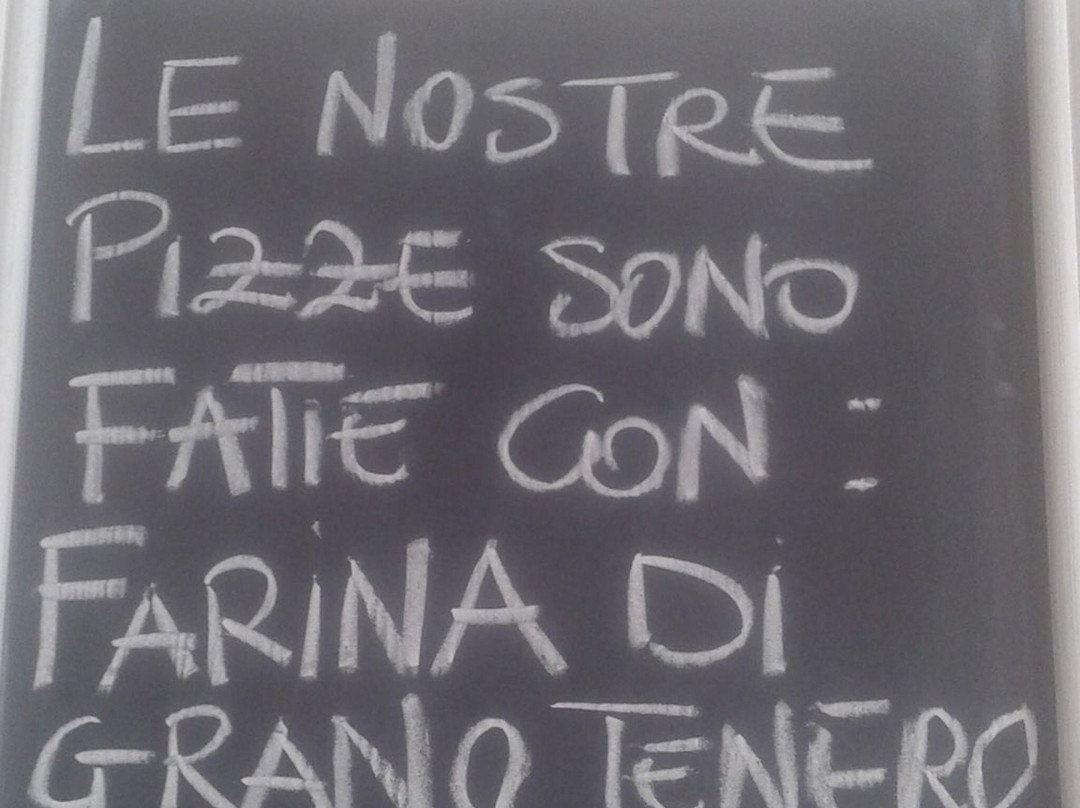 LE NOSTRE
PIZZE SONO
FATTE CON :
FARINA DI
GRANO TENERO